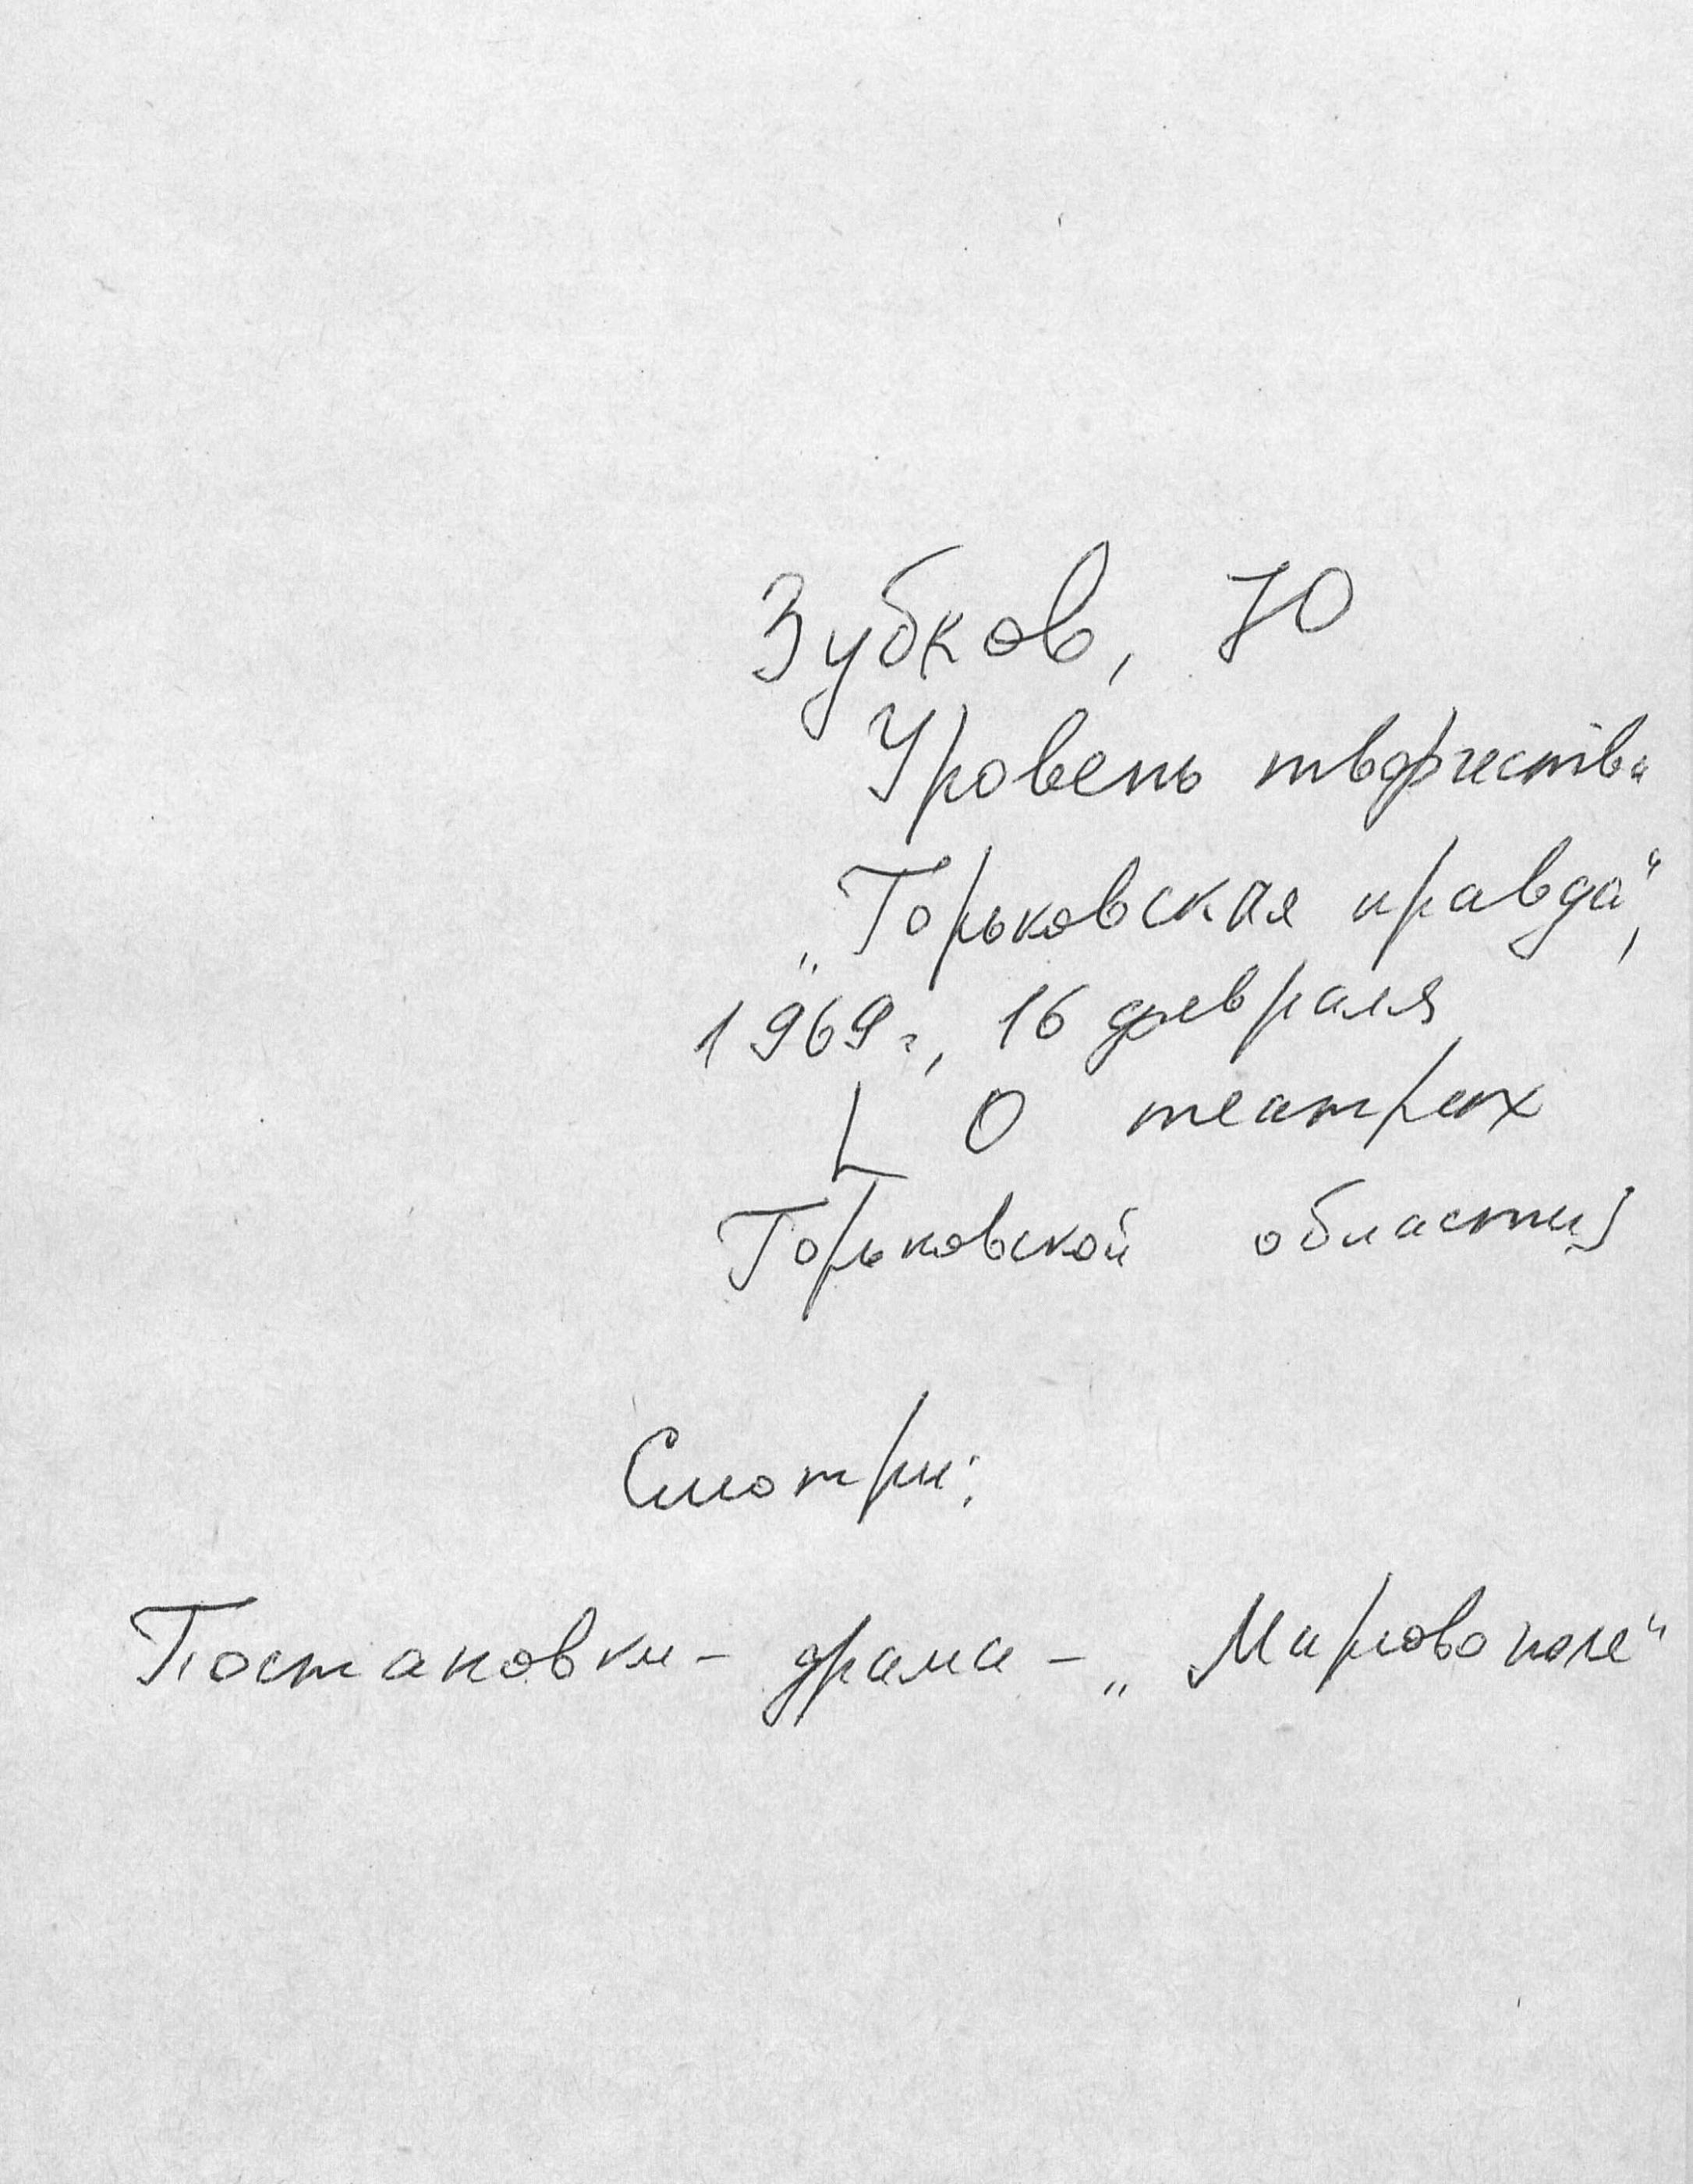 Зубков, Ю
Уровень творчества
„Горьковская правда“,
1969г., 16 февраля
[ О театрах
Горьковской области]
Смотри:
Постановки – драма – „